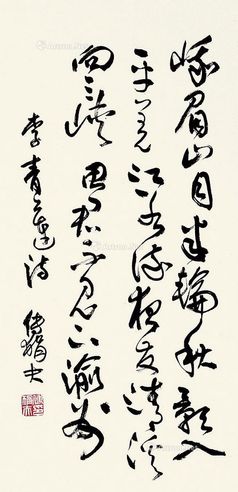 峨眉山月半輪秋影入
平羌江水流夜發清溪
向三峽思君不見下渝州
李青蓮詩 傅狷夫